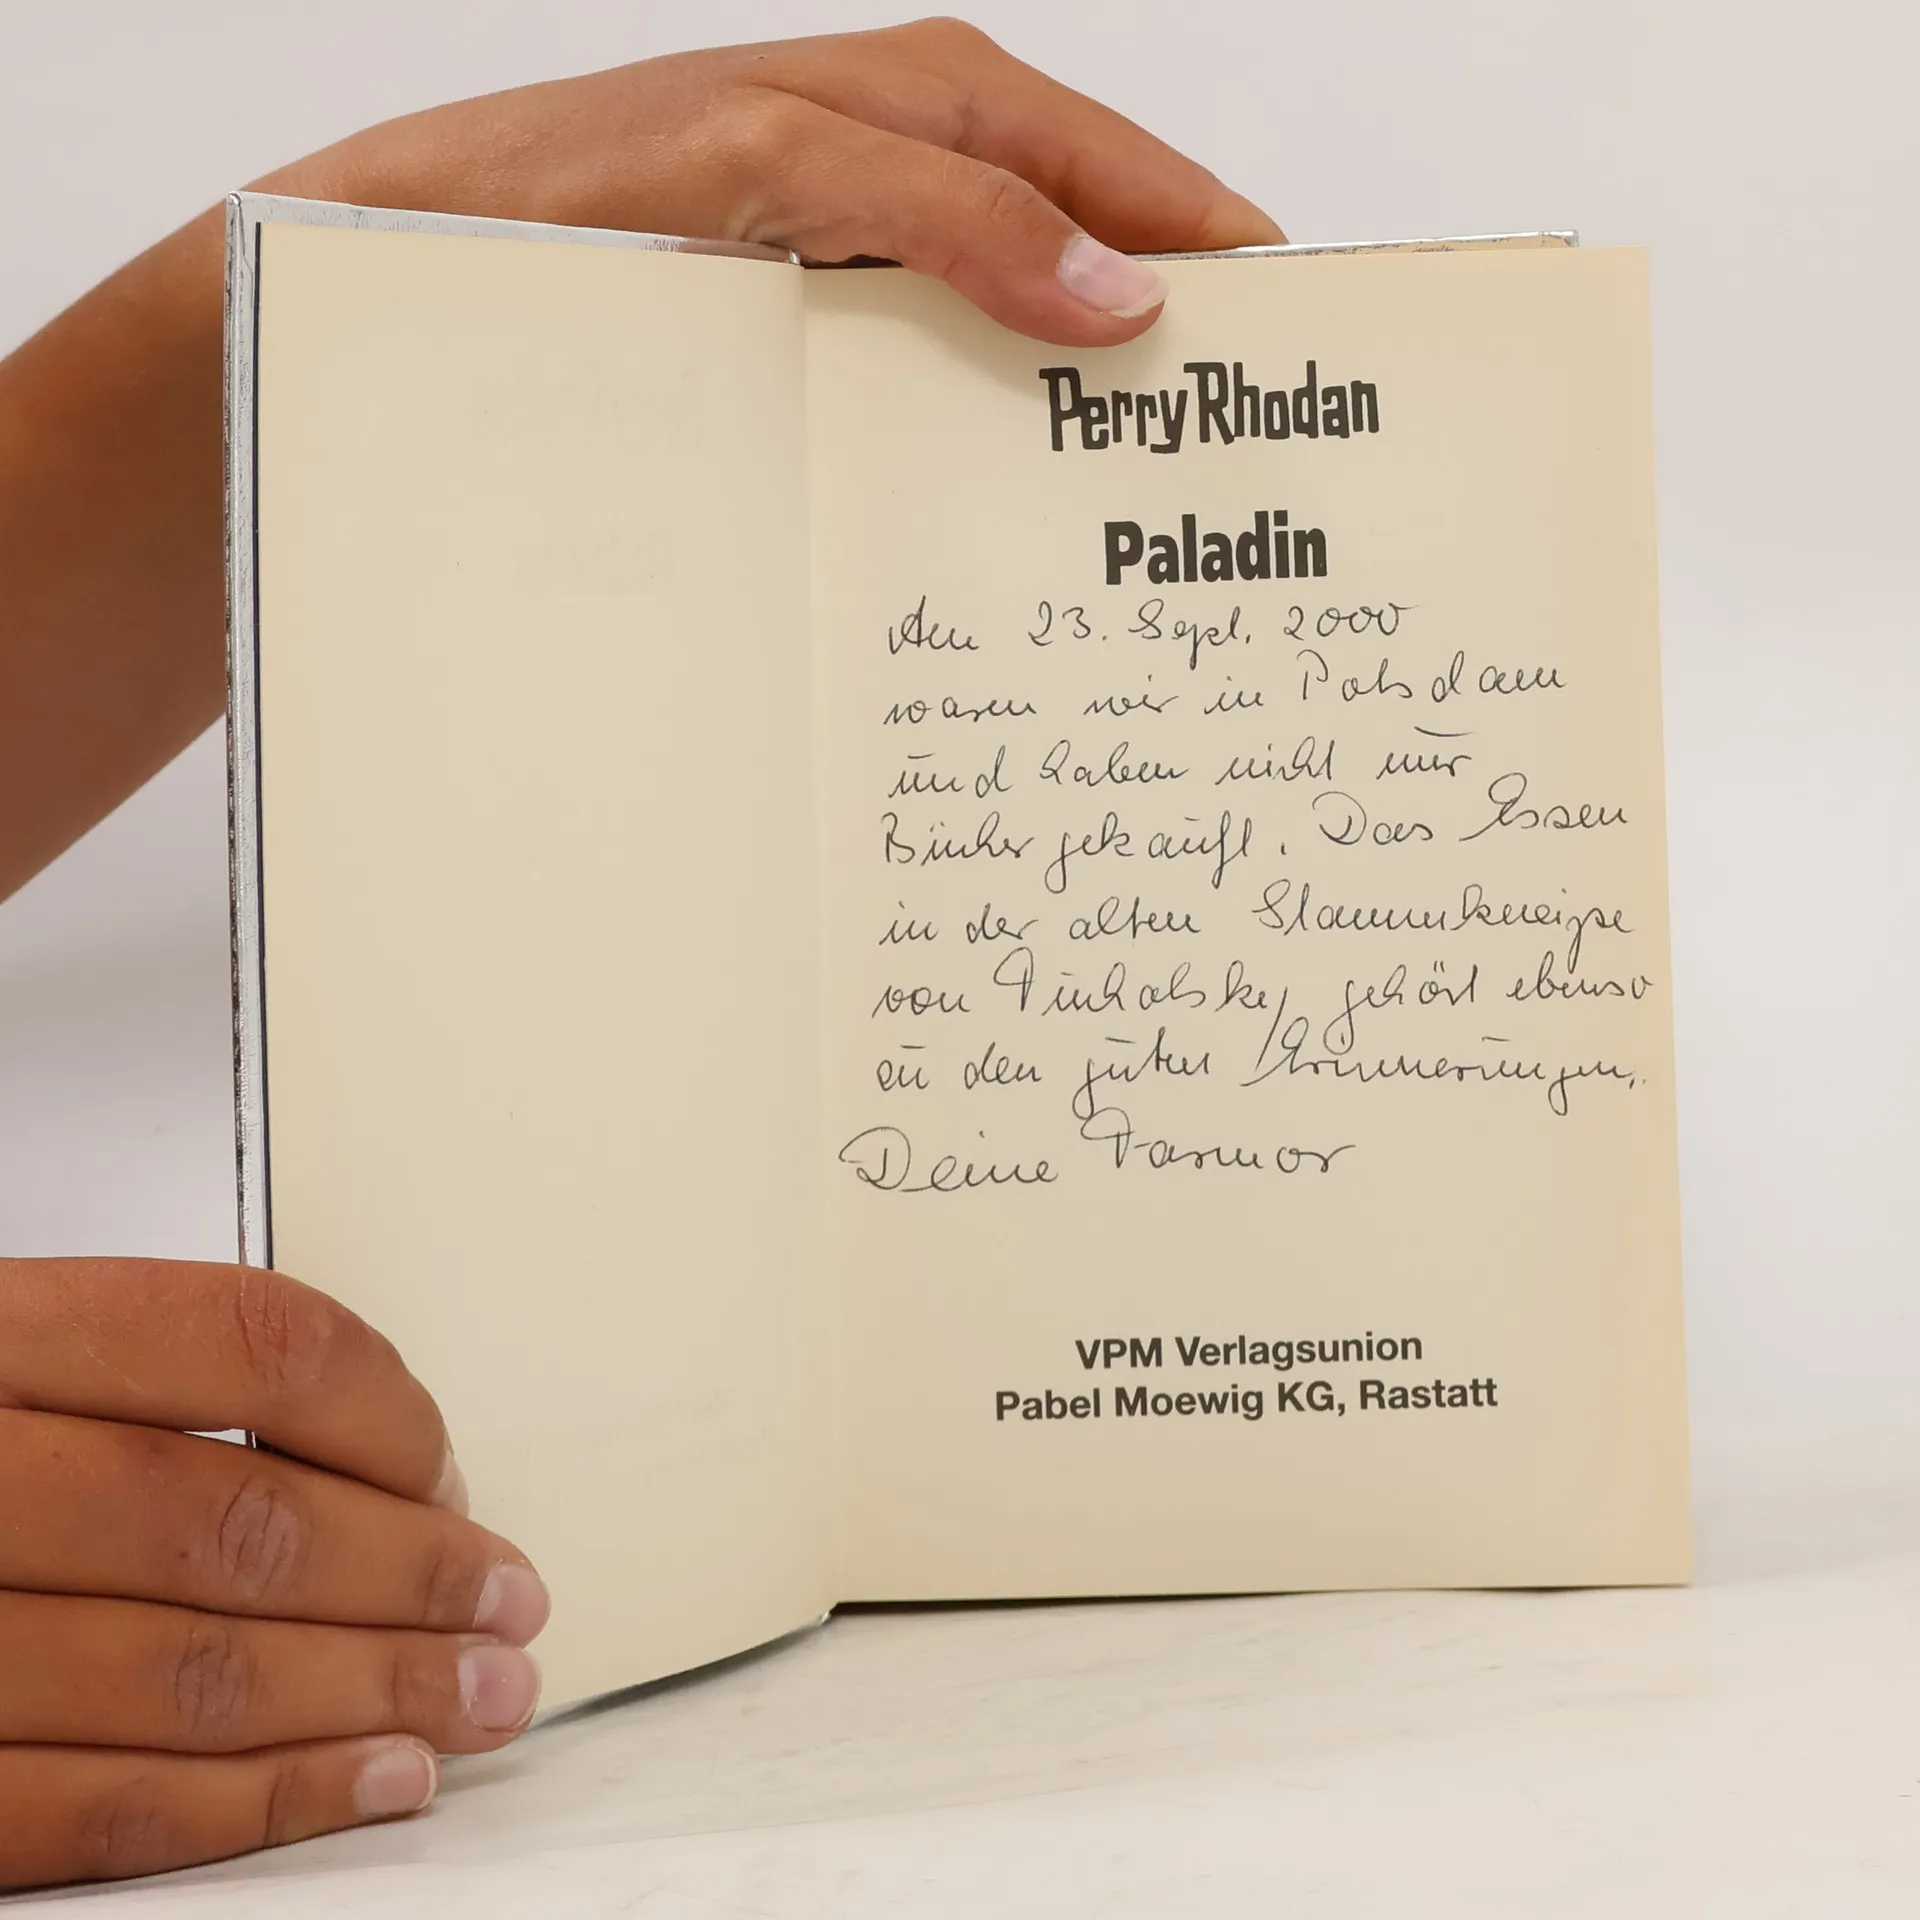 Perry Rhodan
Paladin
Am 23. Sept. 2000
waren wir in Potsdam
und haben nicht nur
Bücher gekauft. Das Essen
in der alten Stammkneipe
von gehört ebenso
zu den guten Erinnerungen.
Deine
VPM Verlagsunion
Pabel Moewig KG, Rastatt